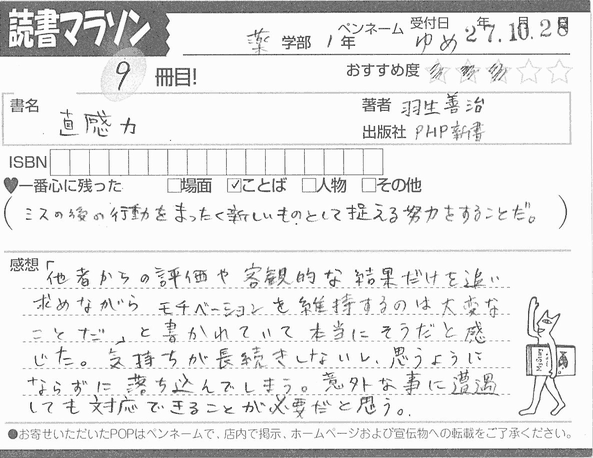 読書マラソン
薬 学部 1年 ペンネーム ゆめ 受付日 27年10月28日
9 冊目!
おすすめ度 ☆☆☆☆☆
書名 直感力
著者 羽生善治
出版社 PHP新書
ISBN
♥一番心に残った □場面 ☑ことば □人物 □その他
(ミスの後の行動をまったく新しいものとして捉える努力をすることだ。)
感想「他者からの評価や客観的な結果だけを追い
求めながら モチベーションを維持するのは大変な
ことだ」と書かれていて本当にそうだと感
じた。気持ちが長続きしないし、思うように
ならずに落ち込んでしまう。意外な事に遭遇
しても対応できることが必要だと思う。
●お寄せいただいたPOPはペンネームで、店内で掲示、ホームページおよび宣伝物への転載をご了承ください。